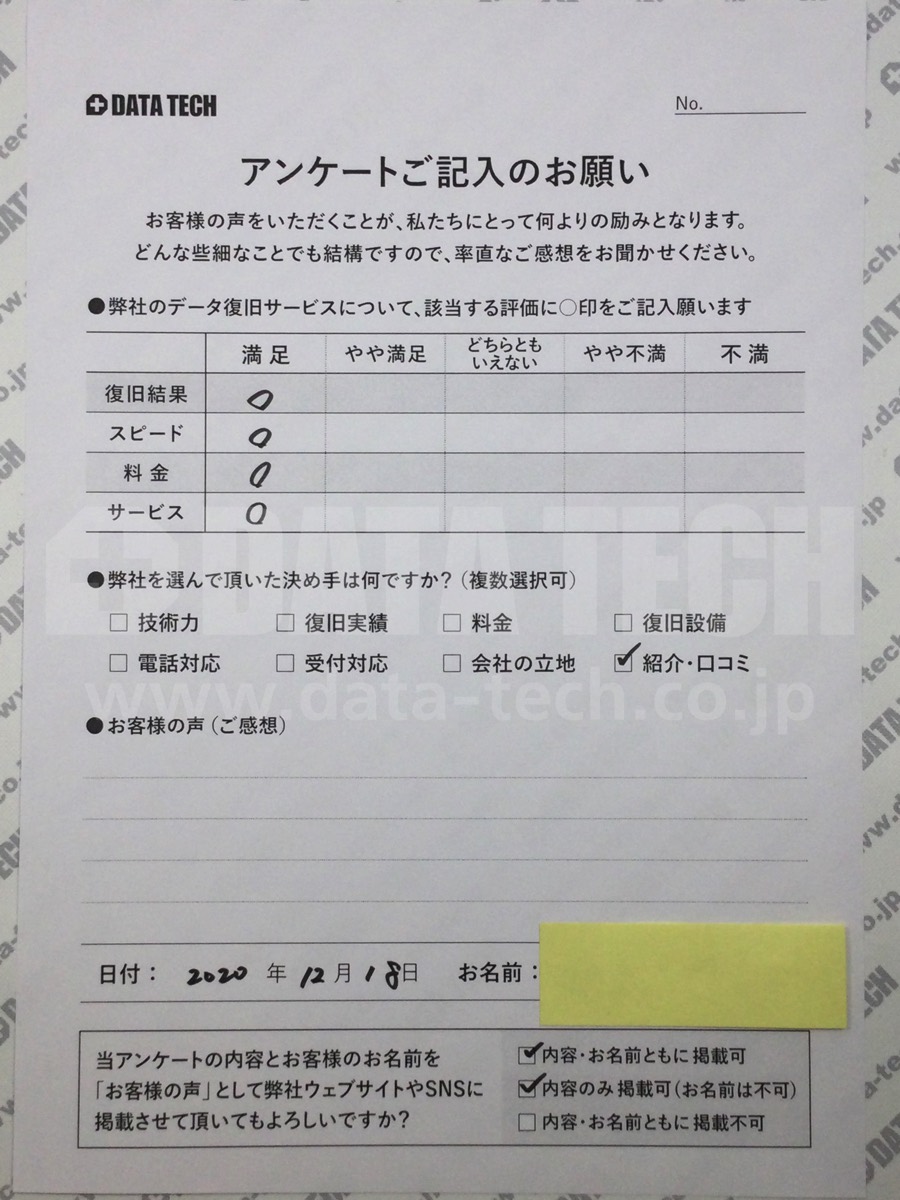 DATA TECH
No.
アンケートご記入のお願い
お客様の声をいただくことが、私たちにとって何よりの励みとなります。
どんな些細なことでも結構ですので、率直なご感想をお聞かせください。
●弊社のデータ復旧サービスについて、該当する評価に〇印をご記入願います
満足 やや満足 どちらともいえない やや不満 不満
復旧結果 〇
スピード 〇
料金 〇
サービス 〇
DATA TECH
●弊社を選んで頂いた決め手は何ですか?(複数選択可)
□ 技術力 □ 復旧実績 □ 料金 □ 復旧設備
□ 電話対応 □ 受付対応 □ 会社の立地 ☑ 紹介・口コミ
www.data-tech.co.jp
●お客様の声(ご感想)
日付: 2020 年 12 月 18 日 お名前:
当アンケートの内容とお客様のお名前を
「お客様の声」として弊社ウェブサイトやSNSに
掲載させて頂いてもよろしいですか?
☑ 内容・お名前ともに掲載可
☑ 内容のみ掲載可(お名前は不可)
□ 内容・お名前ともに掲載不可